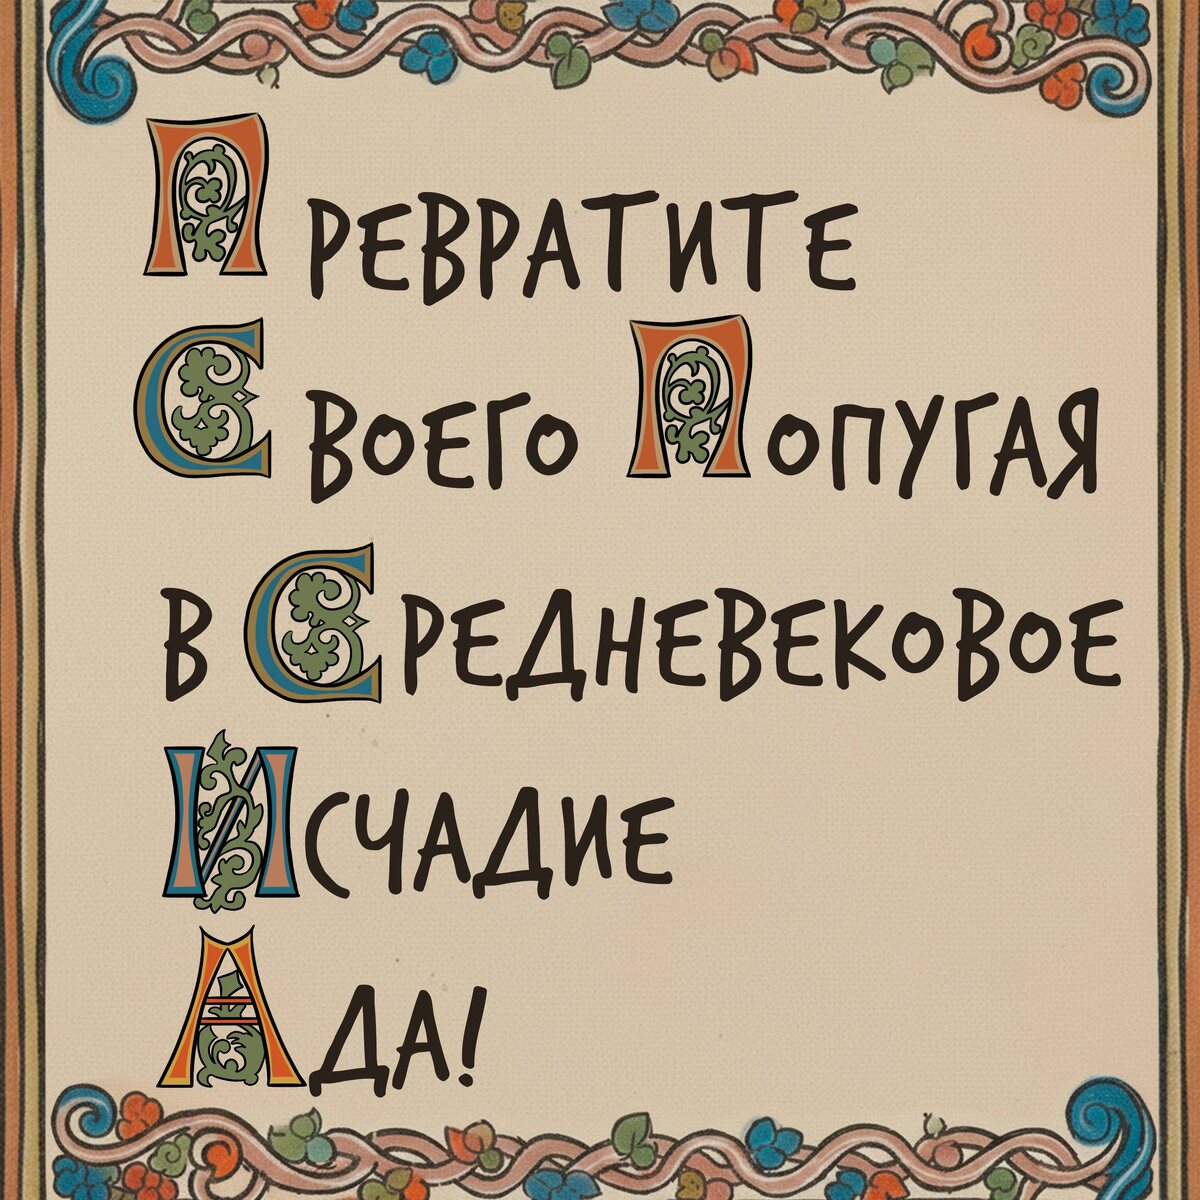 Превратите
Своего Попугая
в Средневековое
Исчадие
Ада!